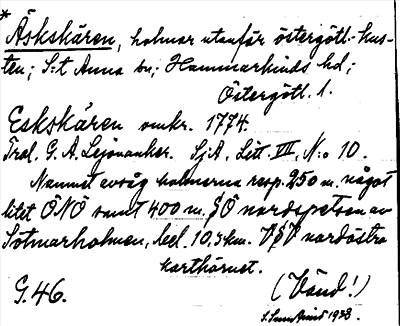 * Äskskären, holmar utanför östergötl.-kus-
ten; S:t Anna sn; Hammarkinds hd;
Östergötl. l.
Eskskären omkr. 1774.
Trol. G. A. Lejonanker. SjA, Litt VII, N:o 10.
Namnet avsåg holmarna resp. 250 m. något
litet ÖNÖ samt 400 m. SÖ nordspetsen av
Sotmarholmen, bel. 10,5 km. VSV nordöstra
karthörnet.
G. 46.
(Vänd!)
1933